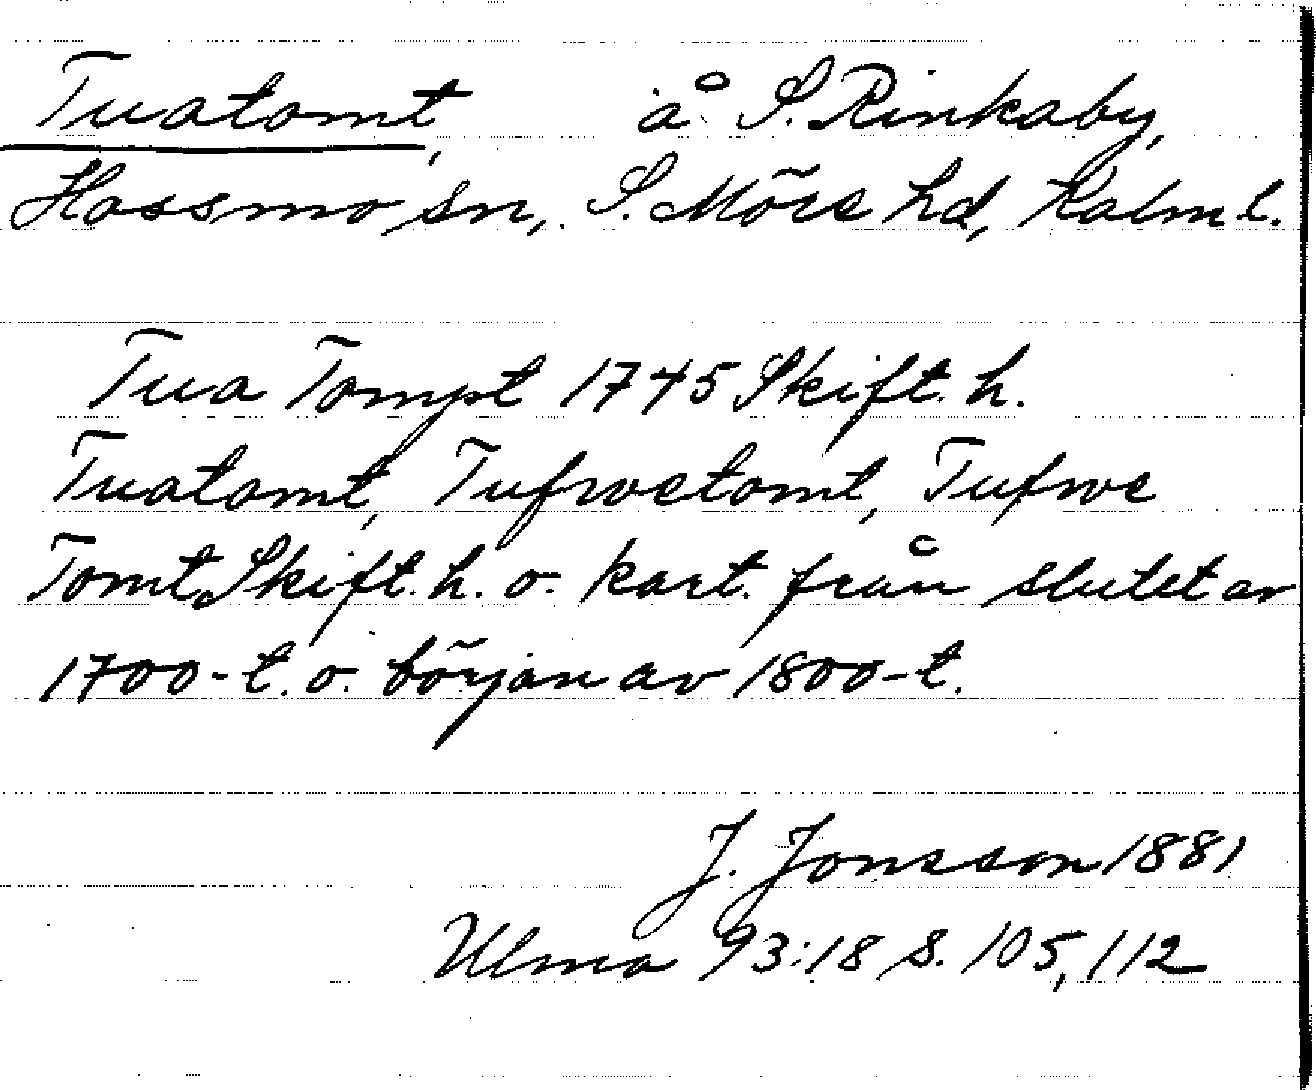 Tuatomt, å S. Rinkaby,
Hossmo sn, S. Möre hd, Kalm l.
Tua Tompt 1745 Skift. h.
Tuatomt, Tufwetomt, Tufwe
Tomt, Skift. h. o. kart. från slutet av
1700-t. o. början av 1800-t.
J. Jonsson 1881
Ulma 93:18 s. 105, 112